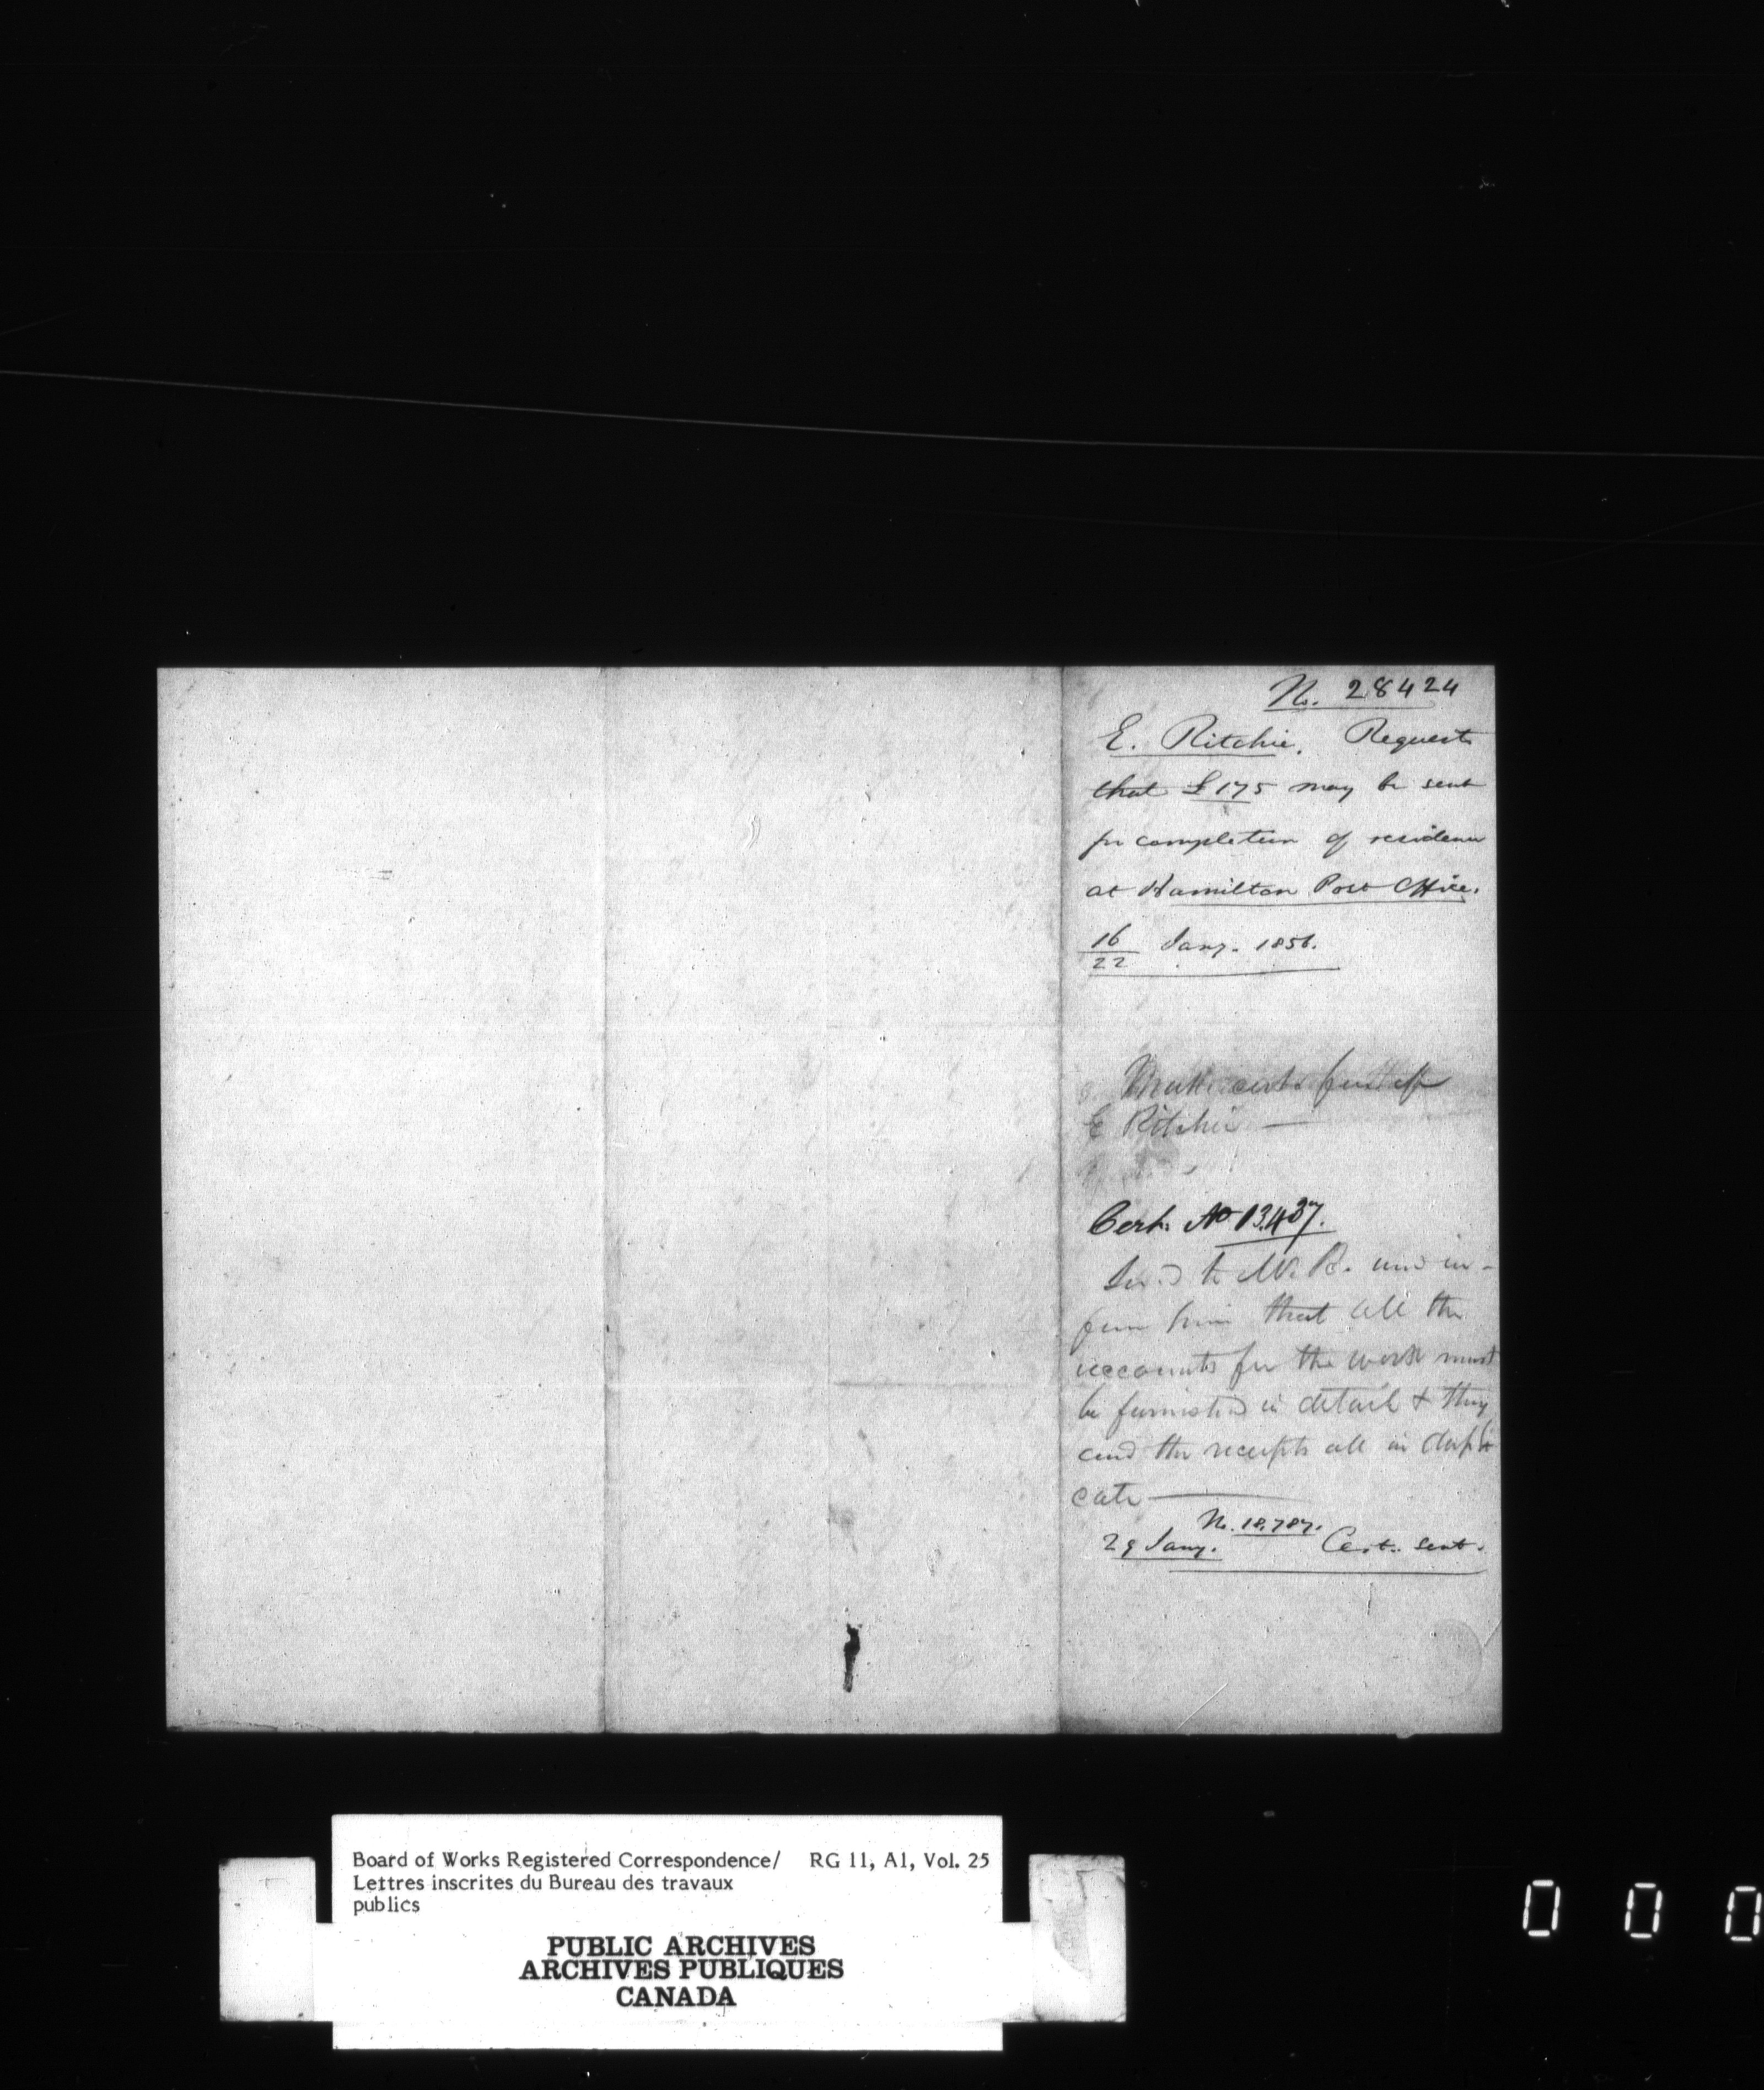 No. 28424
E. Ritchie. Requests
that £175 may be sent
for completion of residence
at Hamilton Post Office.
16
22 Jany. 1856.
Make cert. in
E Ritchie —
Cert. No 13.437.
Send to Mr. R. and in-
form him that all the
accounts for the work must
be furnished in detail & they
and the receipts all in dupli
cate —
No. 18,787.
29 Jany. Cert. sent.
Board of Works Registered Correspondence/ RG 11, A1, Vol. 25
Lettres inscrites du Bureau des travaux
publics
PUBLIC ARCHIVES
ARCHIVES PUBLIQUES
CANADA
0 0 0